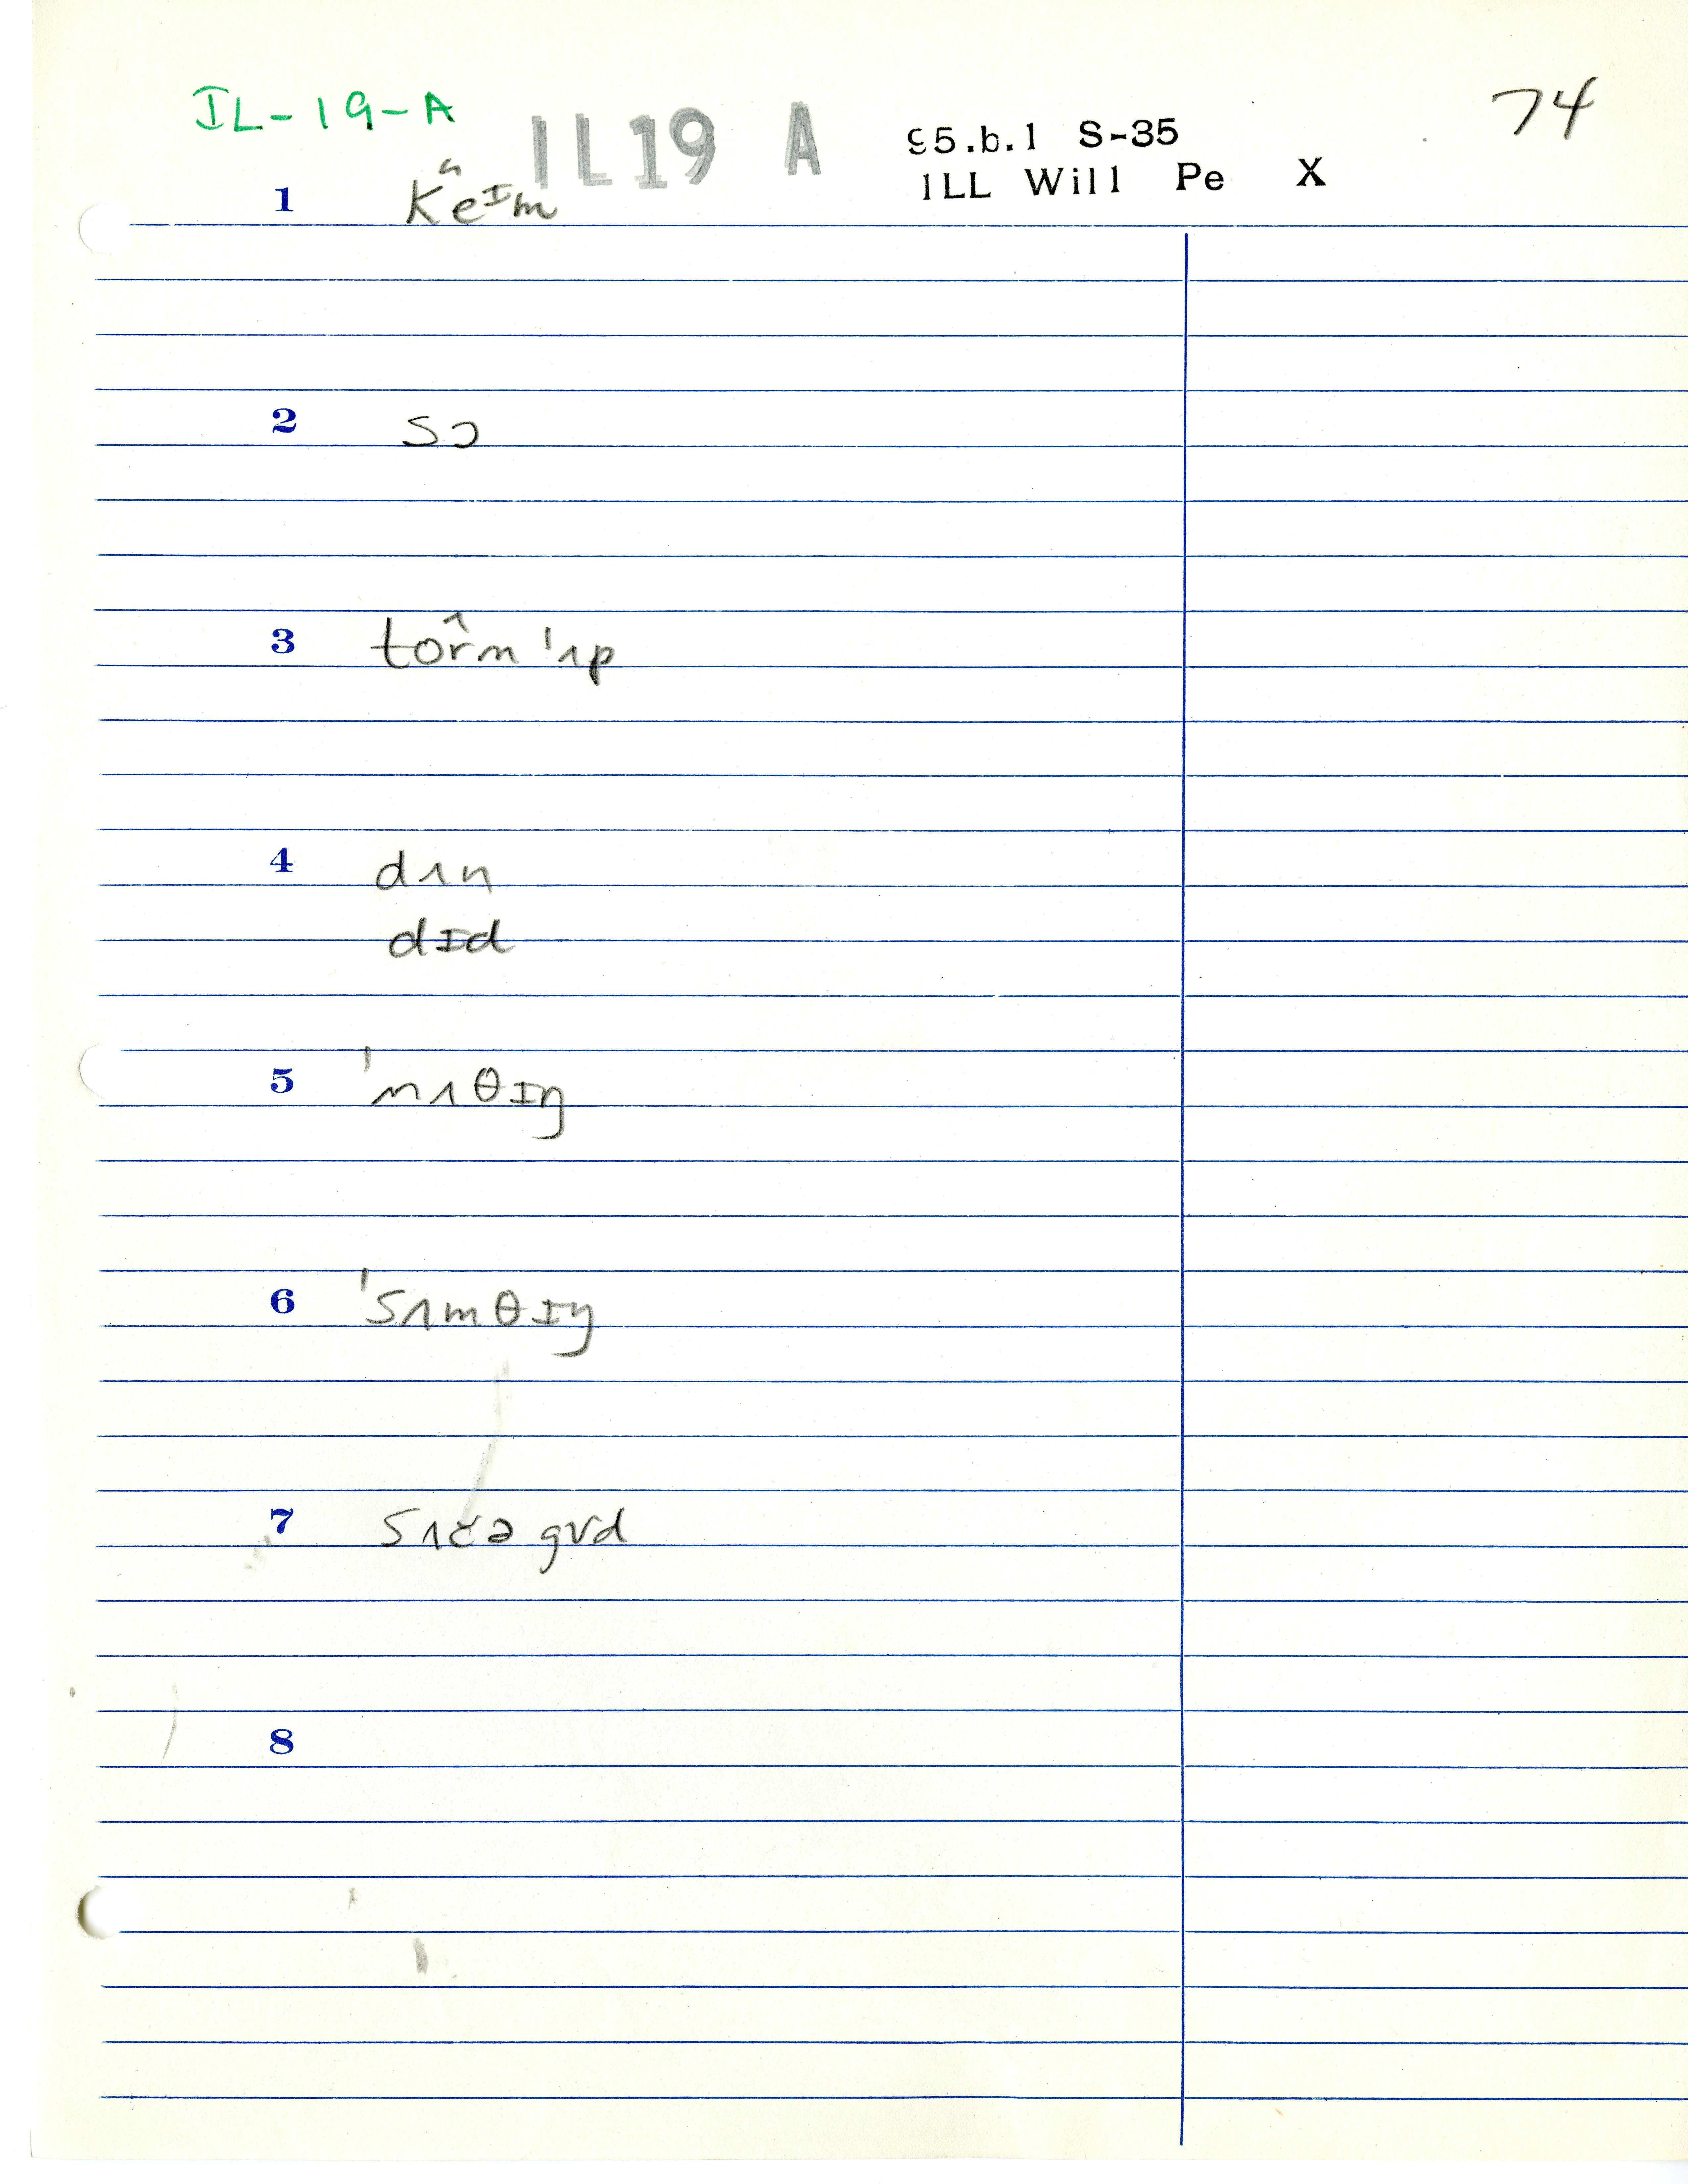 IL-19-A IL19 A 95.b.1 S-35 74
ILL Will Pe X
1 keɪm
2 sɔ
3 torm 'ʌp
4 dʌn
dɪd
5 'nʌθɪŋ
6 'sʌmθɪŋ
7 sʌčə gvd
8